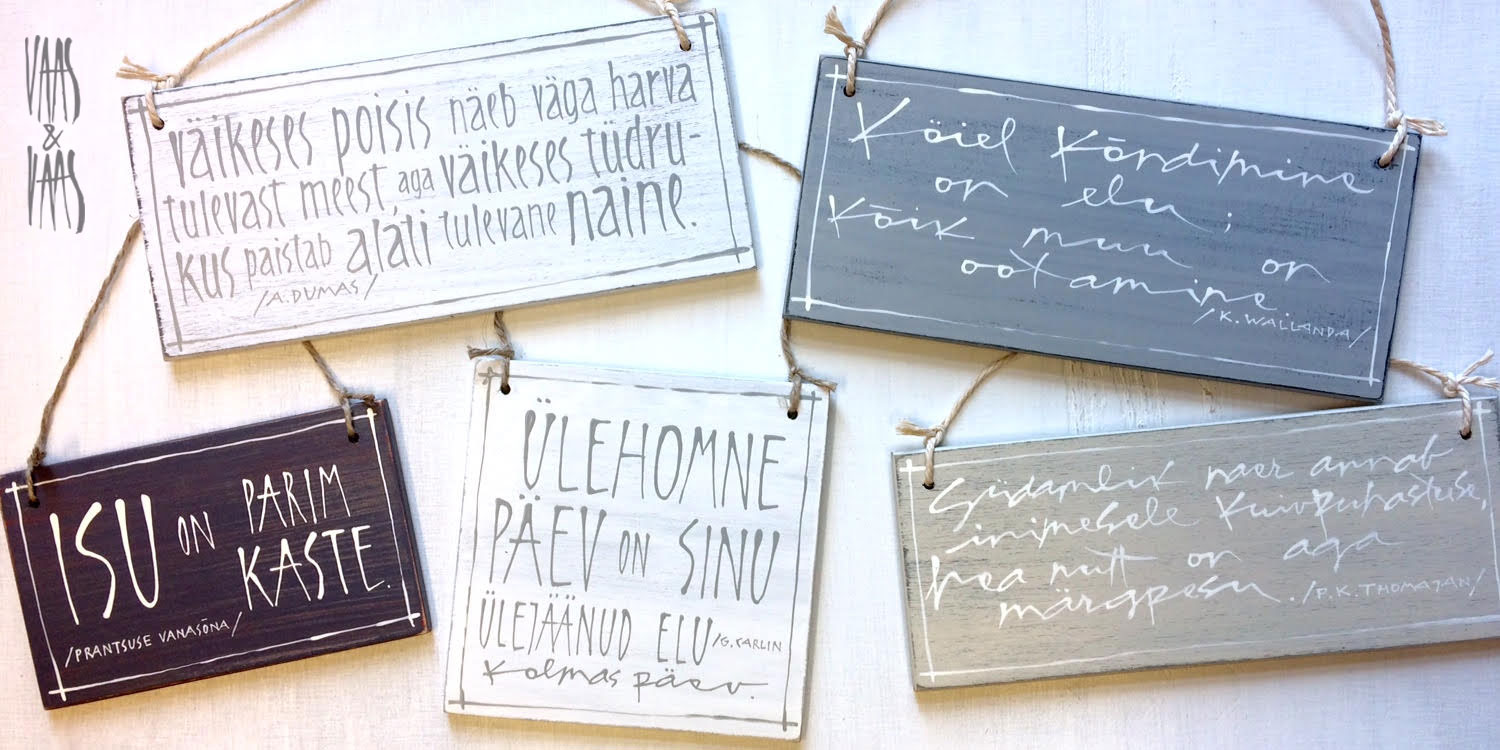 VAAS
&
VAAS
väikeses poisis näeb väga harva
tulevast meest, aga väikeses tüdru-
kus paistab alati tulevane naine.
/A.DUMAS/
Köiel kõndimine
on elu;
kõik muu on
ootamine.
/K. WALLANDA/
ISU ON PARIM
KASTE.
/PRANTSUSE VANASÕNA/
ÜLEHOMNE
PÄEV ON SINU
ÜLEJÄÄNUD ELU /G. CARLIN
kolmas päev.
Südamlik naer annab
inimesele kuivpuhastuse,
hea nutt on aga
märgpesu. /P.K.THOMAJAN/